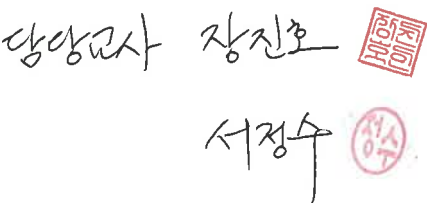 담당교사 장진호
서정수
정수